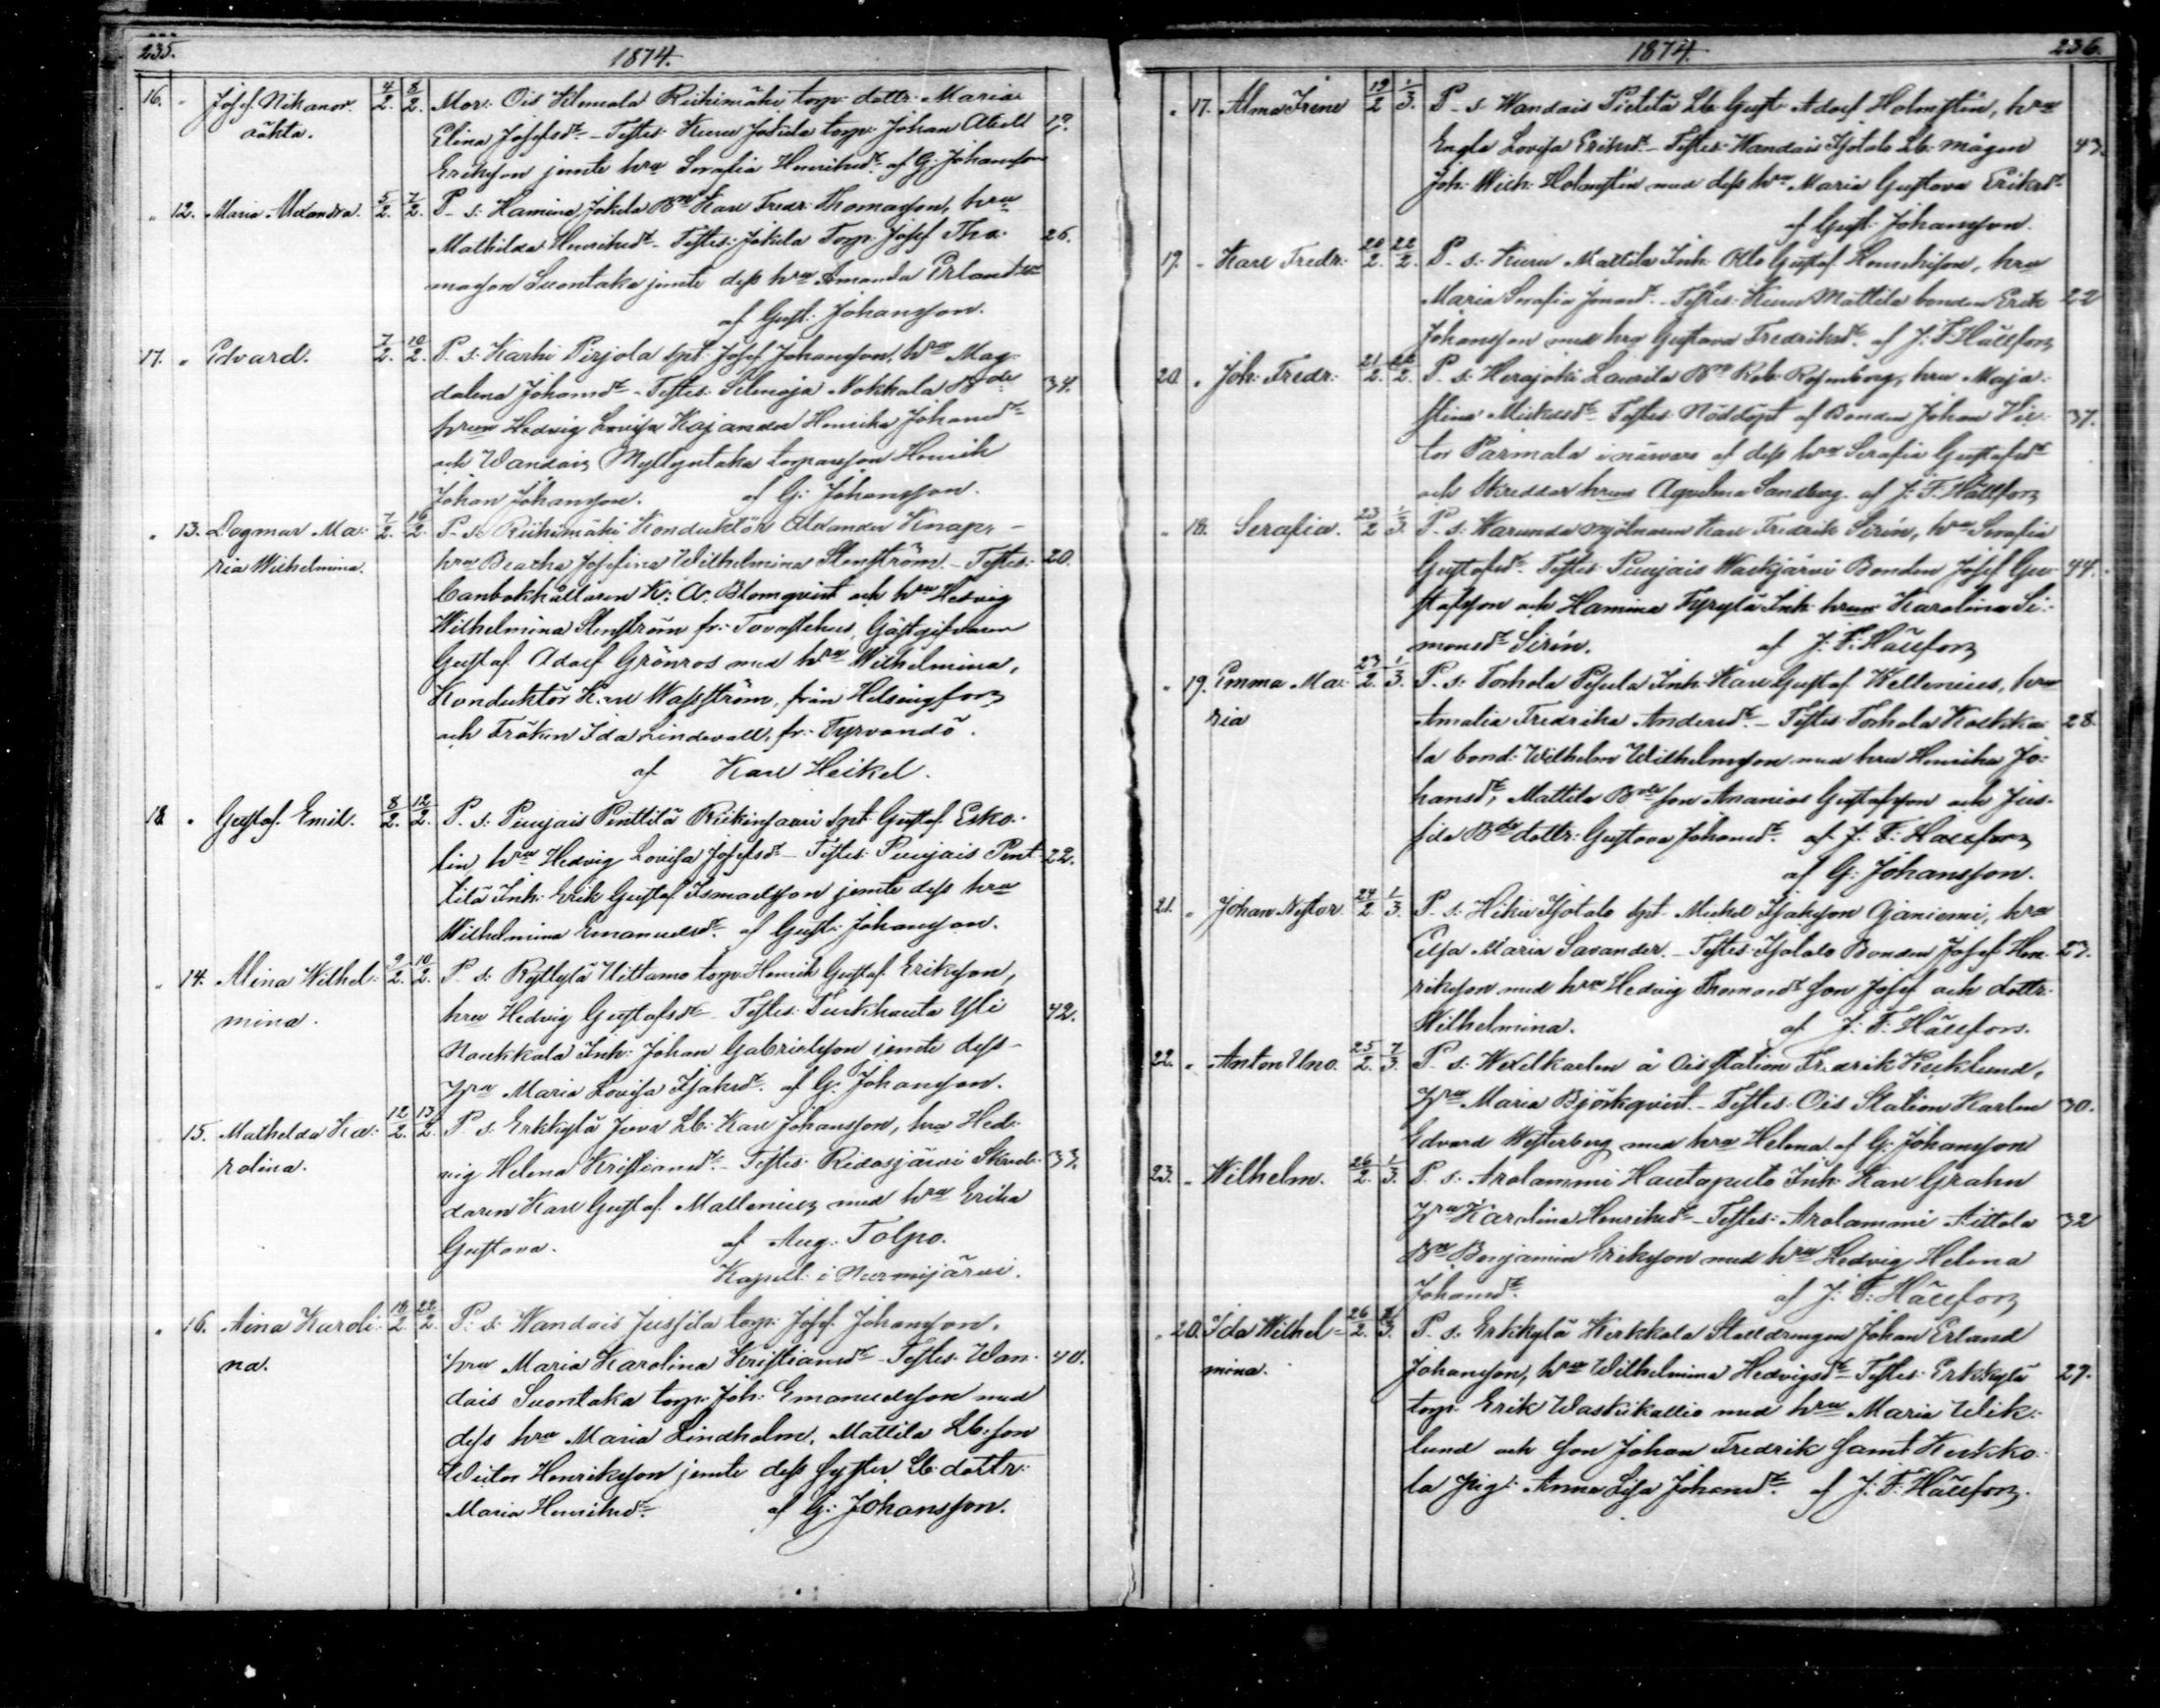 235. 1874.
16. " Josef Nikanor. 4/2. 8/2. Mor: Ois Klemola Riihimäki torp: dottr: Maria
oäkta. Elina Josefsdr. – Testes: Kuru Jokela torp: Johan Abell 19.
Eriksson jemte hru Serafia Henriksdr. af G. Johansson
" 12. Maria Alexandra. 5/2. 7/2. P. s: Hamina Jokela Bn Karl Fredr: Thomasson, hru
Mathilda Henriksdr. Testes: Jokela Torp: Josef Tho- 26.
masson Suontaka jemte dess hru Amanda Erlandsdr
af Gust: Johansson.
17. " Edvard. 7/2. 10/2. P. s: Karhi Pirjola spt: Josef Johansson, hru Mag-
dalena Johansdr – Testes: Selmaja Nokkala Bde 34.
hrun Hedvig Lovisa Kajander Henrika Johansdr
och Wandais Myllyntaka torparsson Henrik
Johan Johansson. af G: Johansson.
" 13. Dagmar Ma- 7/2. 16/2. P. s: Riihimäki Konduktör Alexander Knap, –
ria Wilhelmina. hru Beatha Josefina Wilhelmina Stenström. – Testes: 20.
Banbokhållaren K: A: Blomqvist och hru Hedvig
Wilhelmina Stenström fr: Tavastehus, Gästgifvaren
Gustaf Adolf Grönros med hru Wilhelmina,
Konduktör Karl Wasström, från Helsingfors
och Fröken Ida Lindevall, fr: Tyrvändö.
af Karl Heikel.
18. " Gustaf Emil. 8/2. 12/2. P. s: Puujais Penttilä Riikinsaari spt: Gustaf Esko-
lin, hru Hedvig Lovisa Josefsdr – Testes: Puujais Pent- 22.
tilä Inh: Erik Gustaf Ismaelsson jemte dess hru
Wilhelmina Emanuelsdr. af Gust: Johansson.
" 14. Alina Wilhel- 9/2. 10/2. P. s: Ryttylä Uittamo torp: Henrik Gustaf Eriksson,
mina. hru Hedvig Gustafsdr – Testes: Turkhauta Yli 42.
Naukkala Inh: Johan Gabrielsson jemte dess –
hru Maria Lovisa Isaksdr. af G: Johansson.
" 15. Mathilda Ka- 12/2. 13/2. P. s: Erkkylä Juva Lb: Karl Johansson, hru Hed-
rolina. vig Helena Kristiansdr. – Testes: Ridasjärvi Skred- 33.
daren Karl Gustaf Mallenius med hru Erika
Gustava. af Aug. Tolpo.
Kapell: i Nurmijärvi.
" 16. Aina Karoli- 19/2 22/2. P. s: Wandais Jussila torp: Josef Johansson,
na. hru Maria Karolina Kristiansdr – Testes: Wan- 40.
dais Suontaka torp: Joh: Emanuelsson med
dess hru Maria Lindholm, Mattila Lb: son
Victor Henriksson jemte dess syster Lb: dottr:
Maria Henriksdr. af G: Johansson.
1874. 236.
" 17. Alma Irene 19/2 1/3. P. s: Wandais Pietilä Lb: Gust: Adolf Holmstén, hru
Engla Lovisa Eriksdr. – Testes: Wandais Isotalo Lb: mågen 43.
Joh: Wich: Holmstén med dess hru Maria Gustava Eriksdr
af Gust: Johansson.
19. " Karl Fredr: 20/2. 22/2. P. s: Kuru Mattila Inh: Otto Gustaf Henriksson, hru
Maria Serafia Jonasdr. – Testes: Kuru Mattila bonden Erik 22
Johansson med hru Gustava Fredriksdr. af J: F: Hällfors
20. " Joh: Fredr: 21/2. 22/2. P. s: Herajoki Laurila Bn Rob: Rosenberg, hru Maja
Stina Mickelsdr. Testes: Nöddöpt af Bonden Johan Vic- 37.
tor Parmala i närvaro af dess hru Serafia Gustafsdr
och Skreddar hrun Aqvelina Sandberg. af J: F: Hällfors
" 18. Serafia. 23/2 1/3. P. s: Karunda mjölnaren Karl Fredrik Sirén, hru Serafia
Gustafsdr. Testes: Puujais Waekjärvi Bonden Josef Gu- 44.
stafsson och Hamina Tyrylä Inh: hrun Karolina Si-
monsdr Sirén. af J: F: Hällfors
" 19. Emma Ma- 23/2. 1/3. P. s: Torhola Pesula Inh: Karl Gustaf Wellenius, hru
ria Amalia Fredrika Andersdr. – Testes: Torhola Kaekka- 28.
la bond: Wilhelm Wilhelmsson med hru Henrika Jo-
hansdr, Mattila Bde son Ananias Gustafsson och Jus-
sila Bde dottr: Gustava Johansdr. af J: F: Hällfors
af G: Johansson.
21. " Johan Nestor 24/2 1/3. P. s: Hikiä Isotalo spt: Mickel Isaksson Ojaniemi, hru
Eilsa Maria Savander. – Testes: Isotalo Bonden Josef Hen- 27.
riksson med hru Hedvig Thomasdr son Josef och dottr:
Wilhelmina. af J: F: Hällfors.
22. " Anton Uno. 25/2. 7/3. P. s: Wexelkarlen å Ois station Fredrik Kuklund,
hru Maria Björkqvist. – Testes: Ois Station Karlen 30.
Edvard Westerberg med hru Helena. af G: Johansson
23. " Wilhelm. 26/2. 1/3. P. s: Arolammi Hautapelto Inh: Karl Grahn
hru Karolina Henriksdr – Testes: Arolammi Aittola 32
Bn Benjamin Eriksson med hru Hedvig Helena
Johansdr. af J: F: Hällfors
" 20. Ida Wilhel- 26/2. 8/3. P. s: Erkkylä Kerkkola Stalldrengen Johan Erland
mina. Johansson, hru Wilhelmina Hedvigsdr – Testes: Erkkylä 29.
torp: Erik Waskikallio med hru Maria Wik-
lund och son Johan Fredrik samt Kerkko-
la pig: Anna Lisa Johansdr. af J. F. Hällfors.